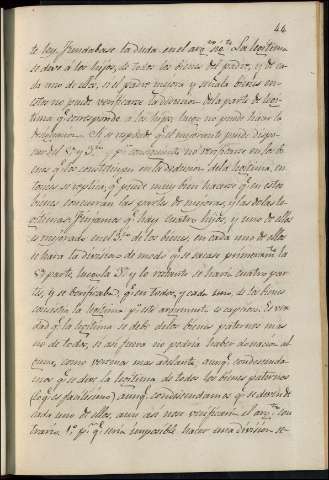 44
te ley. Fundabase la duda en el arg.to sig.te La legitima
se deve á los hijos, de todos los bienes del padre, y de ca-
da uno de ellos; si el padre mejora y señala bienes en
estos no puede verificarse la division de la parte de legi-
tima q.e corresponde a los hijos; luego no puede hacer la
designacion. Si se responde q.e el mejorante puede dispo-
ner del 5.o y 3.o, y p.r consiguiente no verificarse en los bie-
nes q.e los constituyen en la deduccion de la legitima, en-
tonces se replica q.e puede muy bien hacerse q.e en estos
bienes concurran las partes de mejoras, y las de las le-
gitimas. Finjamos q.e hay cuatro hijos, y uno de ellos
es mejorado en el 3.o de los bienes, en cada uno de ellos
se hará la division de modo q.e se saque primeram.te la
5.a parte, luego la 3.a y lo restante se hará cuatro par-
tes, y se verificará q.e en todos, y cada uno, de los bienes
consista la legitima p.o este argumento es capcioso. Es ver-
dad q.e la legitima se debe de los bienes paternos mas
no de todos, si así fuera no podria haber donacion al-
guna, como veremos mas adelante, aunq.e condescenda-
mos q.e se deve la legitima de todos los bienes paternos
(lo q.e es falsisimo) aunq.e condescendamos q.e se deve de
cada uno de ellos, aun asi nose verificaria el arg.to con-
trario. 1.o p.r q.e seria imposible hacer una division se-